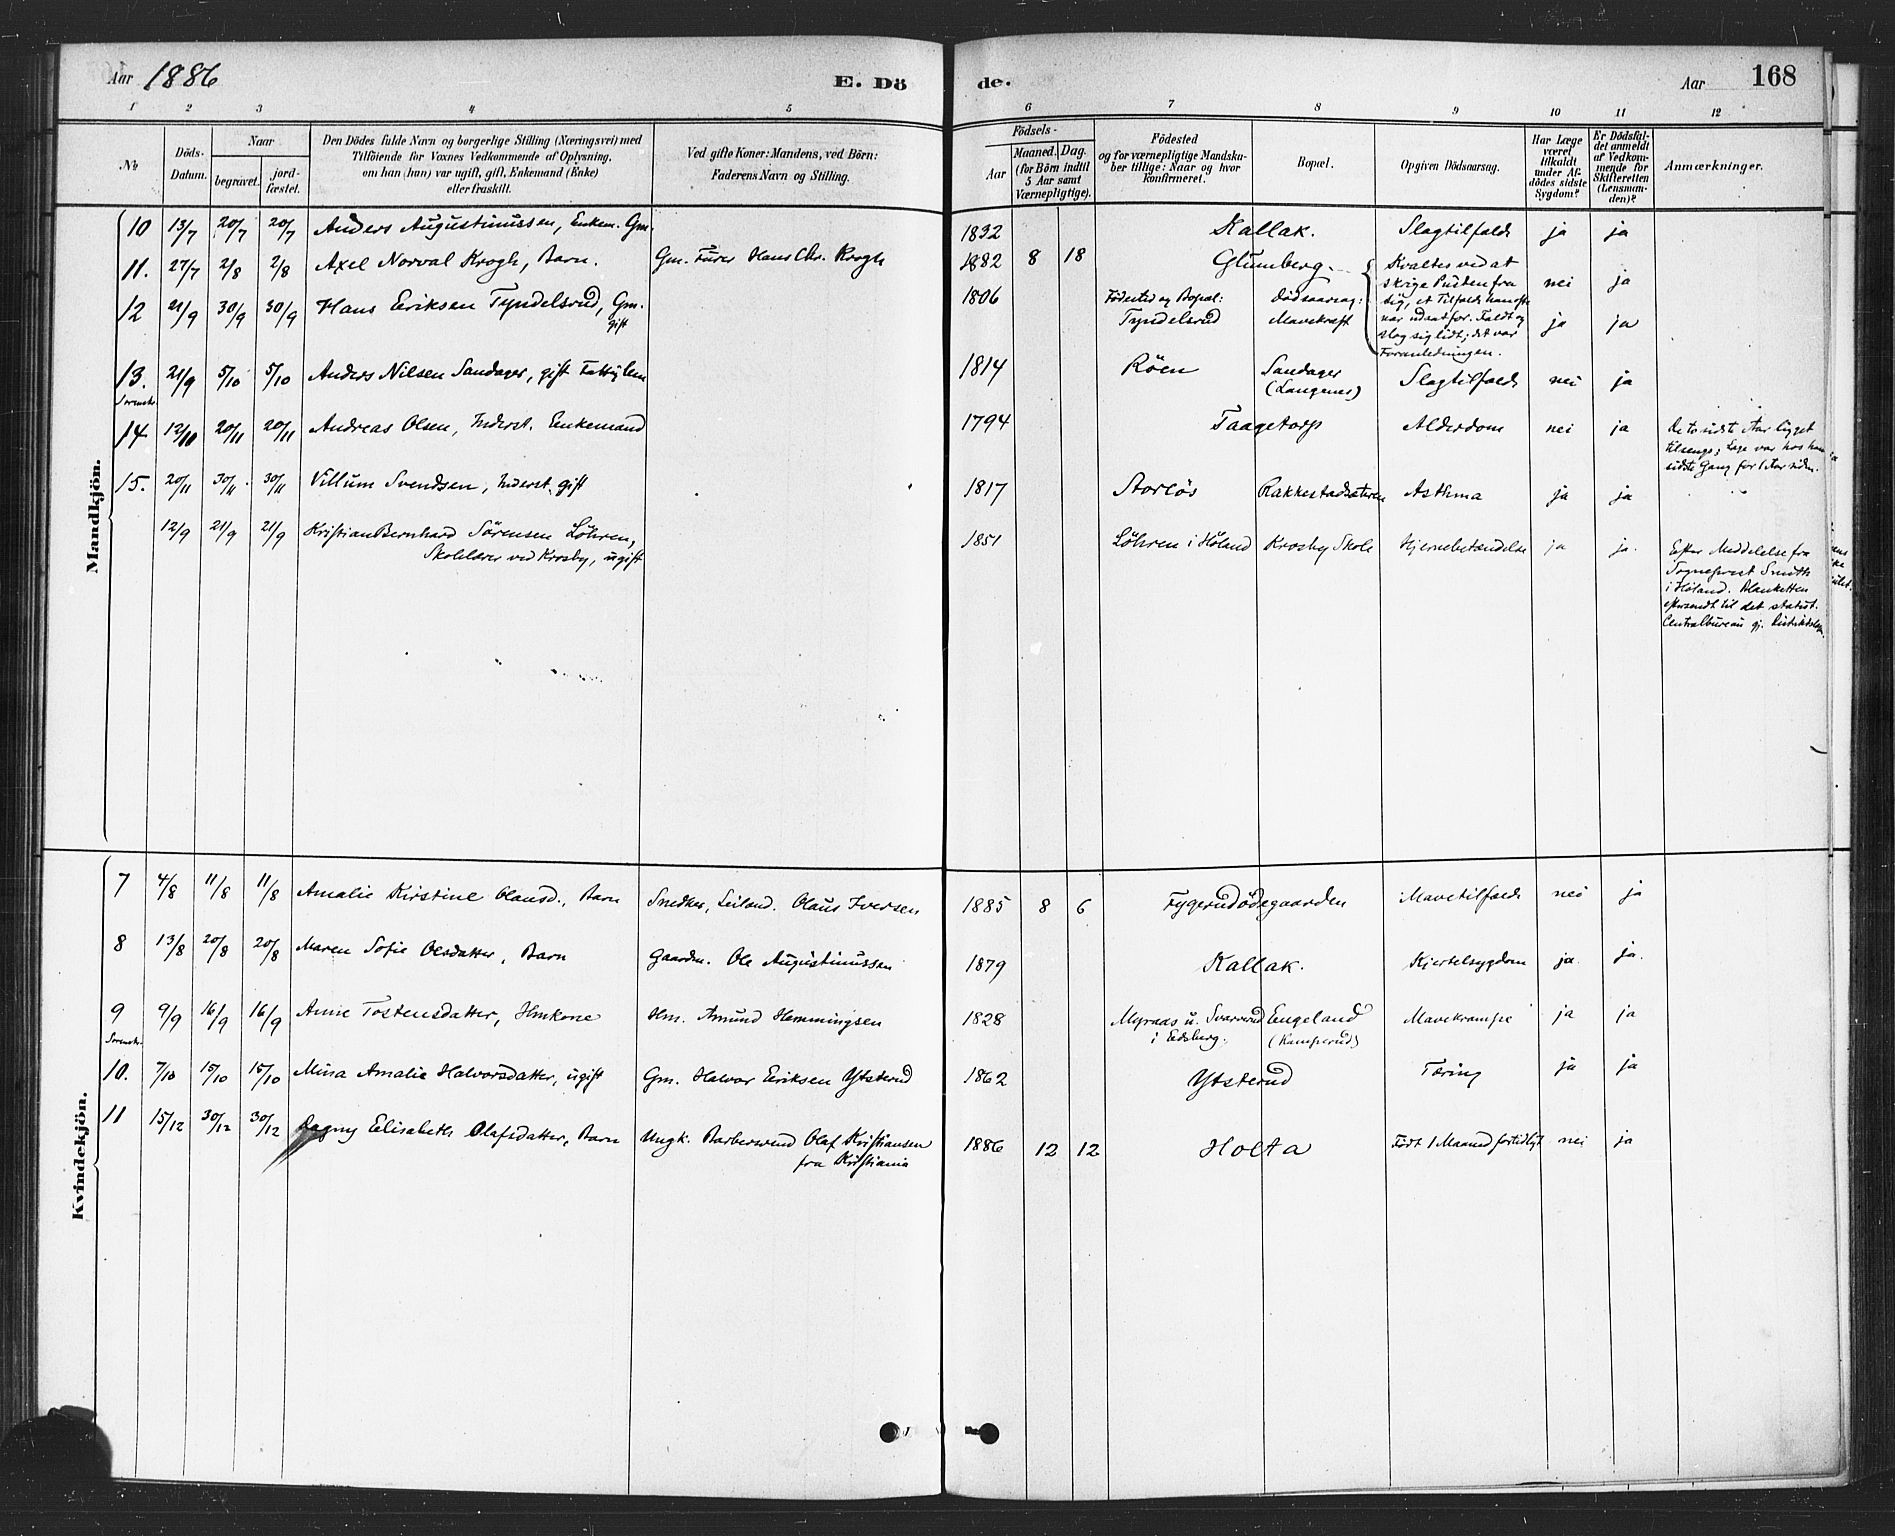 Aar 1886 E. Dö de. Aar 168
1 2 3 4 5 6 7 8 9 10 11 12
No
Döds-Datum.
Naar
begravet.
jordfæstet.
Den Dödes fulde Navn og borgerlige Stilling (Næringsvei) med
Tilföiende for Voxnes Vedkommende af Oplysning,
om han (hun) var ugift, gift, Enkemand (Enke)
eller fraskilt.
Ved gifte Koner: Mandens, ved Börn:
Faderens Navn og Stilling.
Födsels-
Aar
Maaned. Dag.
(for Börn indtil
5 Aar samt
Værnepligtige).
Födested
og for værnepligtige Mandskaber tillige: Naar og hvor
konfirmeret.
Bopæl.
Opgiven Dödsaarsag.
Har Læge
været
tilkaldt
under Afdödes sidste
Sygdom?
Er Dödsfaldet anmeldt
af Vedkommende for
Skifteretten
(Lensmanden)?
Anmærkninger.
Mandkjön.
10 13/7 20/7 20/7 Anders Augustinussen, Enkem. Gm. 1832 Kallak. Slagtilfælde ja ja
11. 27/7 2/8 2/8 Axel Norval Krogh, Barn. Gm. Furer Hans Chr. Krogh 1882 8 18 Glumberg. Kvaltes ved at
skrige Puden fra
sig, et Tilfælde han ofte
var udsat for. Faldt og
slog sig lidt; det var
Foranledningen. nei ja
12 21/9 30/9 30/9 Hans Eriksen Tyndelsrud, Gm.
gift 1806 Födested og Bopæl:
Tyndelsrud Dödsaarsag:
Mavekræft ja ja
13. 21/9 5/10 5/10 Anders Nilsen Sandager, gift Fattiglem 1814 Röen Sandager
(Langenes) Slagtilfælde nei ja
14 12/10 20/11 20/11 Andreas Olsen, Inderst. Enkemand 1794 Taagetorp Alderdom nei ja De to sidste Aar ligget
tilsengs; Læge var hos ham
sidste Gang for 1 Aar siden.
15. 20/11 30/11 30/11 Villum Svendsen, Inderst. gift 1817 Storlös Rakkestadsæteren Asthma ja ja
12/9 21/9 21/9 Kristian Bernhard Sörensen Löhren,
Skolelærer ved Krosby, ugift 1851 Löhren i Höland Krosby Skole Hjernebetændelse ja ja. Efter Meddelelse fra
Sogneprest Smith
i Höland. Blanketten
eftersendt til det statist.
Centralbureau gj. Distriktslægen.
Kvindekjön.
7 4/8 11/8 11/8 Amalie Kirstine Olausd., Barn Snedker, Leiland. Olaus Iversen 1885 8 6 Fygerudödegaarden Mavetilfælde nei ja
8 13/8 20/8 20/8 Maren Sofie Olesdatter, Barn Gaardm. Ole Augustinussen 1879 Kallak. Kjertelsygdom ja. ja.
9 9/9 16/9 16/9 Anne Tostensdatter, Hmkone Hm. Amund Hemmingsen 1828 Myraas u. Svarverud
i Eidsberg. Engeland
(Kamperud) Mavekrampe ja ja
10. 7/10 15/10 15/10 Mina Amalie Halvorsdatter, ugift Gm. Halvor Eriksen Ytsterud 1862 Ytsterud Tæring ja ja
11 15/12 30/12 30/12 Dagny Elisabeth Olafsdatter, Barn Ungk. Barbersvend Olaf Kristiansen
fra Kristiania 1886 12 12 Holta Födt 1 Maaned fortidligt nei ja